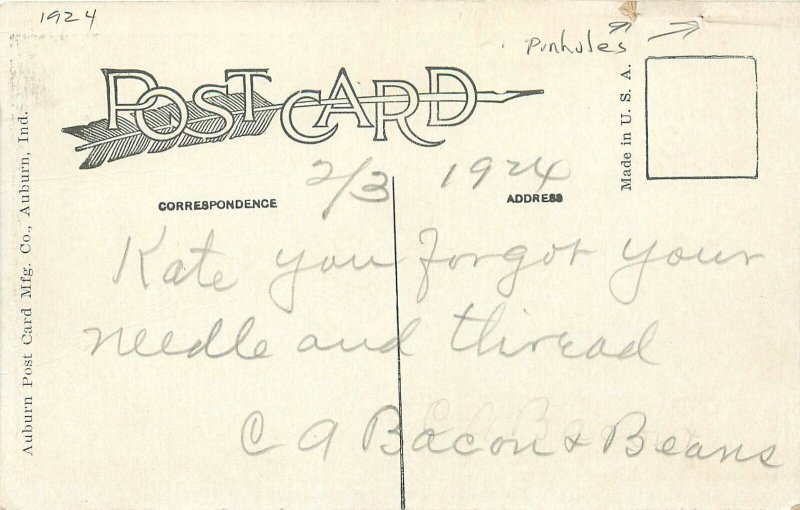 1924
pinholes
POST CARD
Made in U. S. A.
Auburn Post Card Mfg. Co., Auburn, Ind.
2/3 1924
CORRESPONDENCE
ADDRESS
Kate you forgot your
needle and thread
C A Bacon & Beans